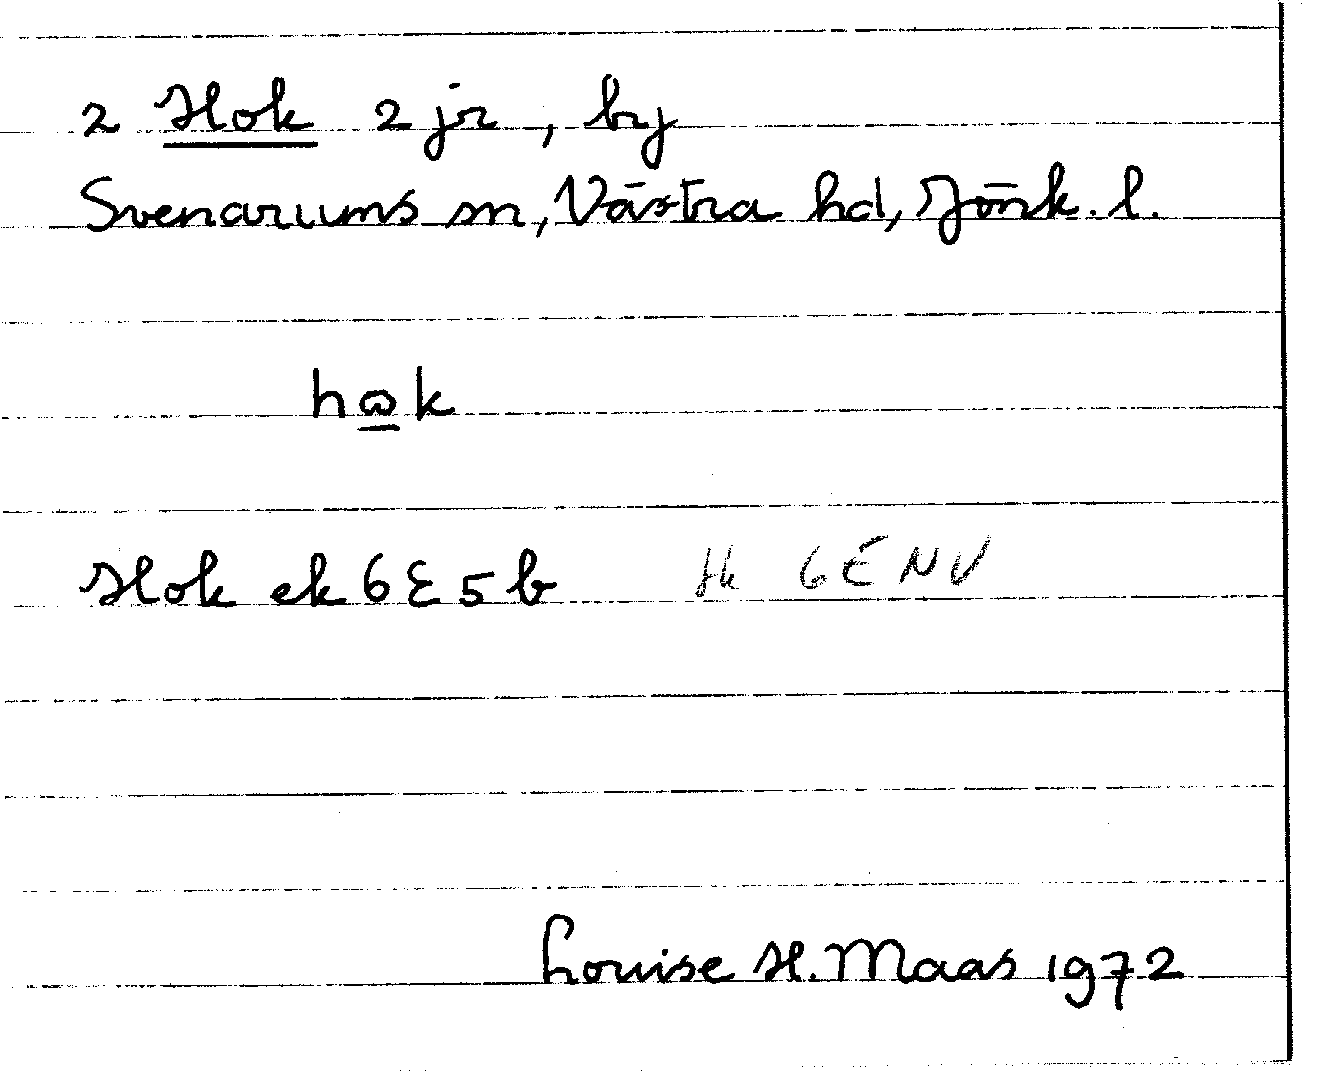 2 Hok 2 jr, by
Svenarums sn, Västra hd, Jönk. l.
hωk
Hok ek 6E5b Hk 6E NV
Louise H. Maas 1972